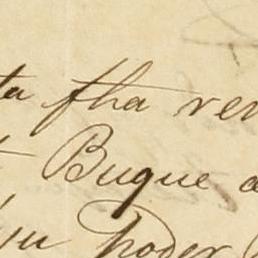 ta fha ren
Buque a
poder